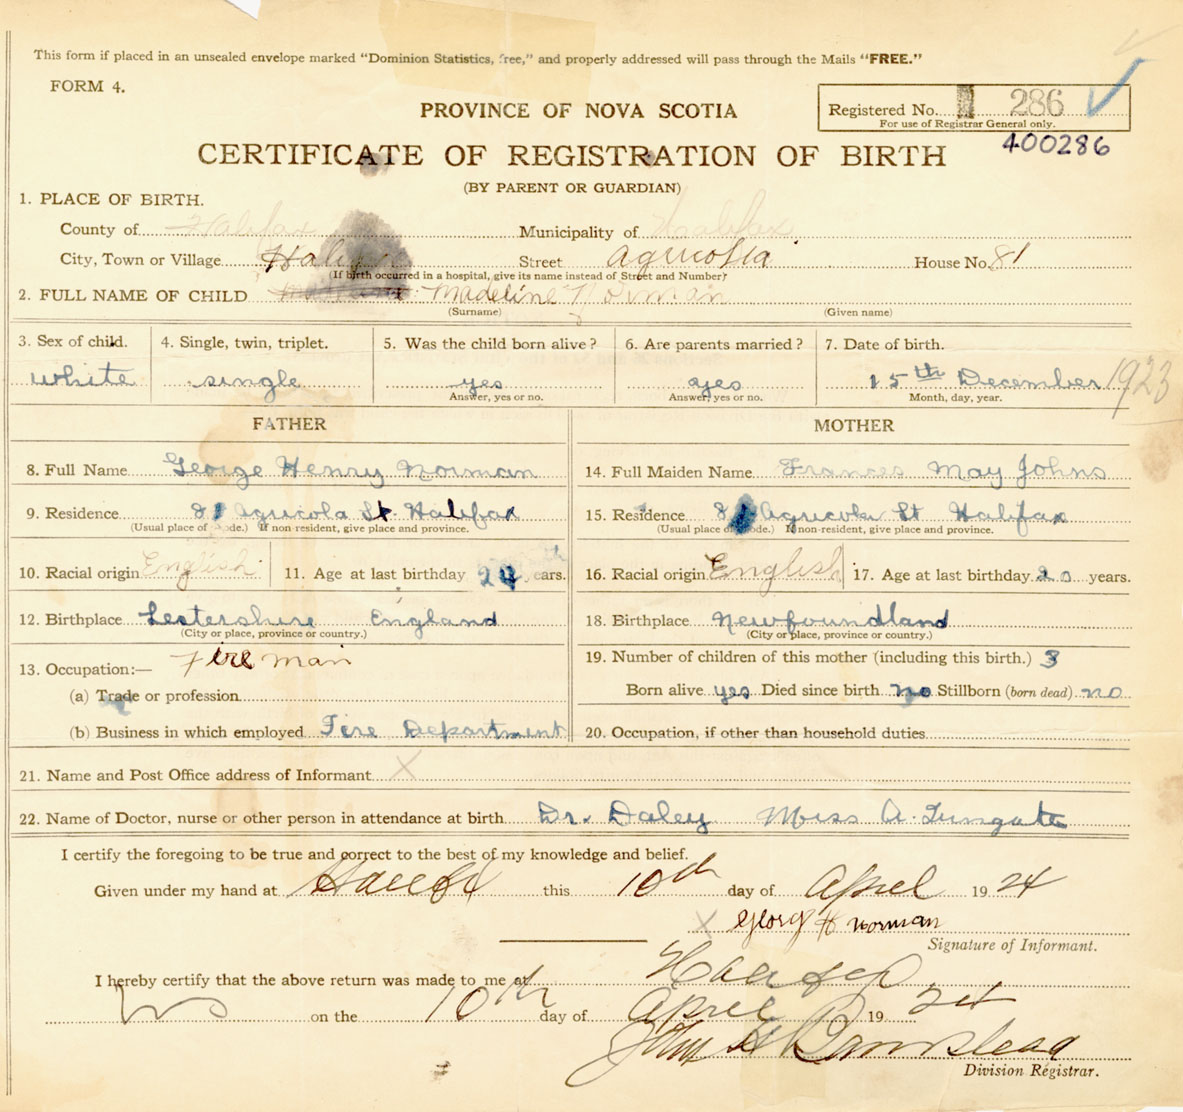 This form if placed in an unsealed envelope marked "Dominion Statistics, free," and properly addressed will pass through the Mails "FREE."
FORM 4.
Registered No. 286
PROVINCE OF NOVA SCOTIA
For use of Registrar General only.
400286
CERTIFICATE OF REGISTRATION OF BIRTH
(BY PARENT OR GUARDIAN)
1. PLACE OF BIRTH.
County of Halifax Municipality of Halifax
City, Town or Village Street Agricola House No. 81
(If birth occurred in a hospital, give its name instead of Street and Number)
2. FULL NAME OF CHILD Madeline Norman
(Surname) (Given name)
3. Sex of child. 4. Single, twin, triplet. 5. Was the child born alive? 6. Are parents married? 7. Date of birth.
white single yes yes 15th December 1923
Answer, yes or no. Answer, yes or no. Month, day, year.
FATHER MOTHER
8. Full Name George Henry Norman 14. Full Maiden Name Frances May Johns
9. Residence 81 Agricola St. Halifax 15. Residence 81 Agricola St Halifax
(Usual place of abode.) If non resident, give place and province. (Usual place of abode.) If non-resident, give place and province.
10. Racial origin English 11. Age at last birthday 24 years. 16. Racial origin English 17. Age at last birthday 20 years.
12. Birthplace Lestershire England 18. Birthplace Newfoundland
(City or place, province or country.) (City or place, province or country.)
13. Occupation:— Fireman 19. Number of children of this mother (including this birth.) 3
(a) Trade or profession Born alive yes Died since birth no Stillborn (born dead) no
(b) Business in which employed Fire Department 20. Occupation, if other than household duties
21. Name and Post Office address of Informant X
22. Name of Doctor, nurse or other person in attendance at birth Dr. Daley Miss A. Tungate
I certify the foregoing to be true and correct to the best of my knowledge and belief.
Given under my hand at Halifax this 10th day of April 1924
X Georg H Norman
Signature of Informant.
I hereby certify that the above return was made to me at Halifax
on the 10th day of April 1924
John H Barnstead
Division Registrar.